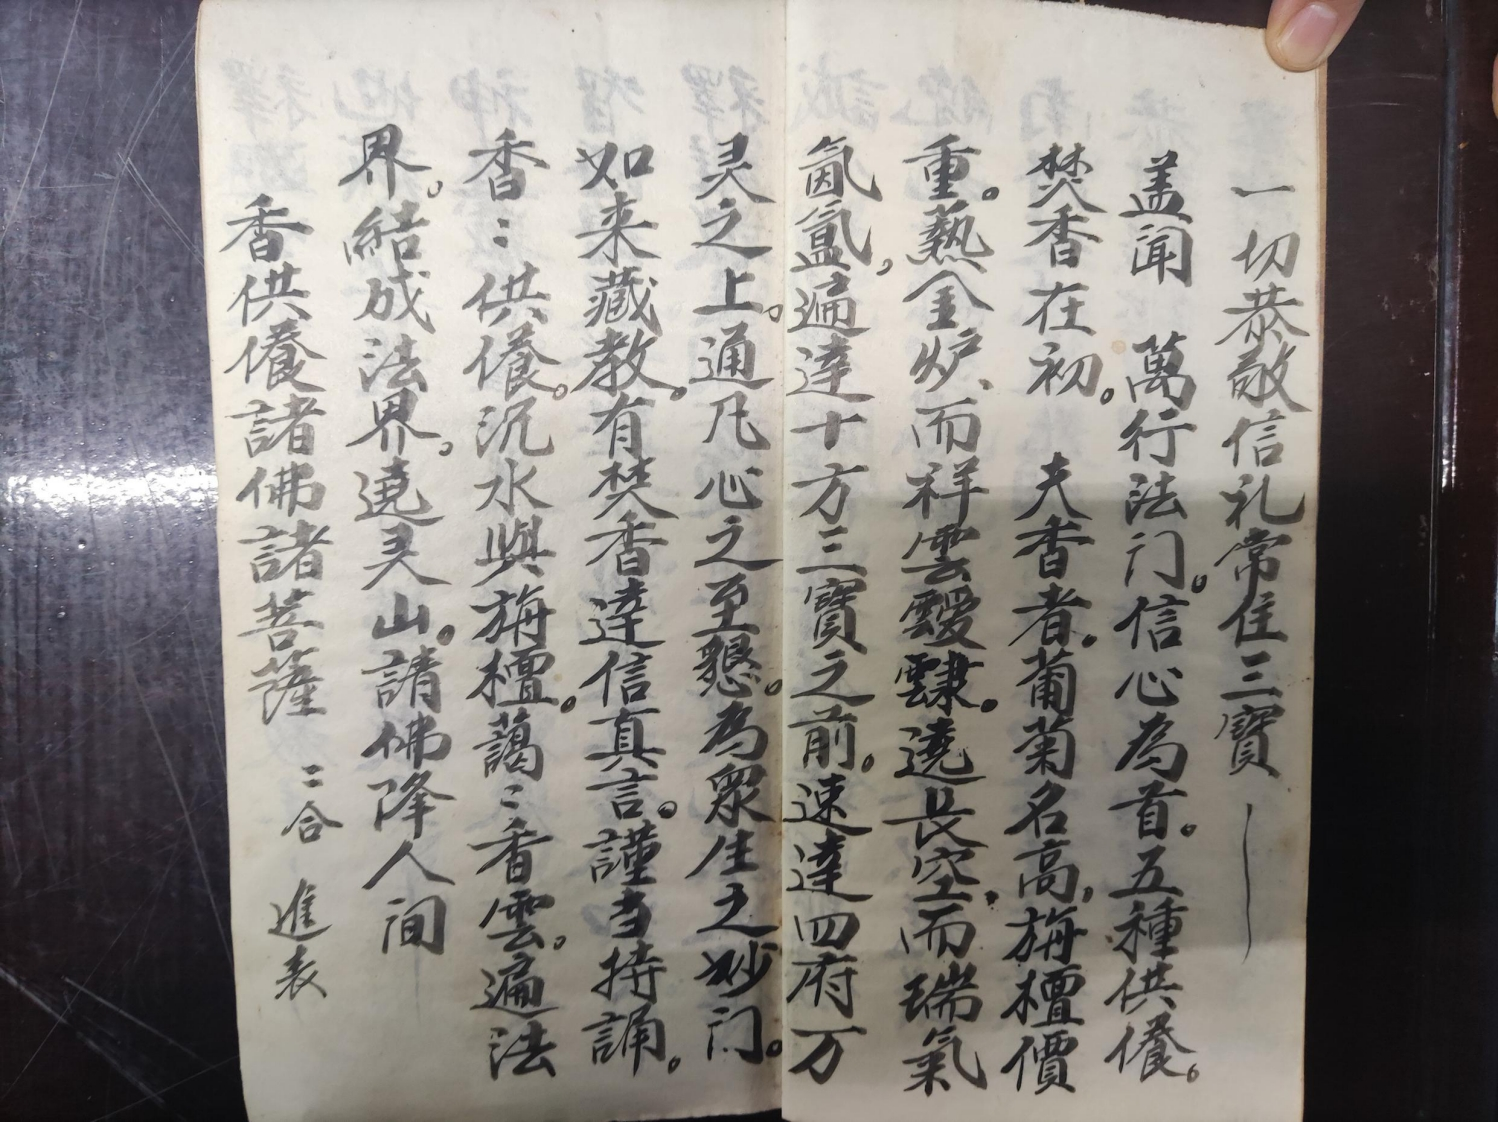 一切恭敬信礼常住三寳
盖闻 萬行法门。信心為首。五種供儀。
焚香在初。 夫香者。蔔菊名高,旃檀價
重。爇金炉、而祥雲靉靆。遶長空,而瑞氣
氤氲,遍達十方三寳之前。速達四府万
灵之上。通凡心之至懇。為衆生之妙门。
如来藏教。有焚香達信真言。謹当持誦。
香:供儀。沉水與旃檀。藹:香雲。遍法
界。結成法界。遶灵山。請佛降人间
香供儀諸佛諸菩薩 :合 進表